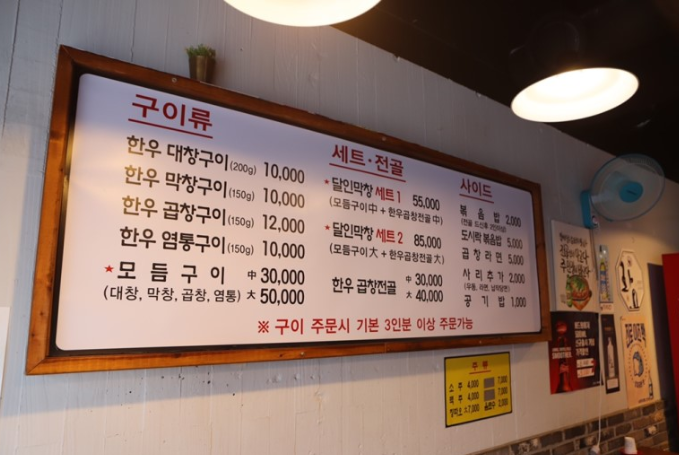 구이류
한우 대창구이(200g) 10,000
한우 막창구이(150g) 10,000
한우 곱창구이(150g) 12,000
한우 염통구이(150g) 10,000
★모듬구이 中 30,000
(대창, 막창, 곱창, 염통) 大 50,000
세트·전골
★달인막창 세트1 55,000
(모듬구이中 + 한우곱창전골 中)
★달인막창 세트2 85,000
(모듬구이大 + 한우곱창전골 大)
한우 곱창전골 中 30,000
大 40,000
사이드
볶음밥 2,000
도시락 볶음밥 5,000
곱창라면 5,000
사리추가 2,000
(우동, 라면, 납작당면)
공기밥 1,000
※ 구이 주문시 기본 3인분 이상 주문가능
주류
소주 4,000
맥주 4,000
7,000
7,000